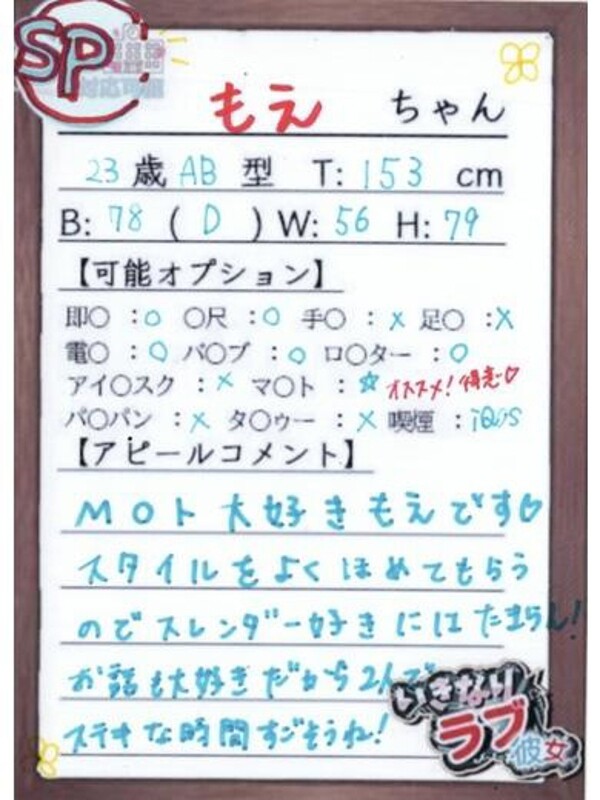 SP
対応可能
もえ ちゃん
23歳 AB 型 T: 153 cm
B: 78 ( D ) W: 56 H: 79
【可能オプション】
即〇 :○ 〇尺 :○ 手〇 :× 足〇 :×
電〇 :○ バ〇ブ :○ ロ〇ター :○
アイ〇スク :× マ〇ト :☆ オススメ!得意♡
パ〇パン :× タ〇ゥー :× 喫煙 :iQOS
【アピールコメント】
M〇ト大好きもえです♡
スタイルをよくほめてもらう
のでスレンダー好きにはたまらん!
お話も大好きだから2人で
ステキな時間すごそうね!
いきなり
ラブ
彼女